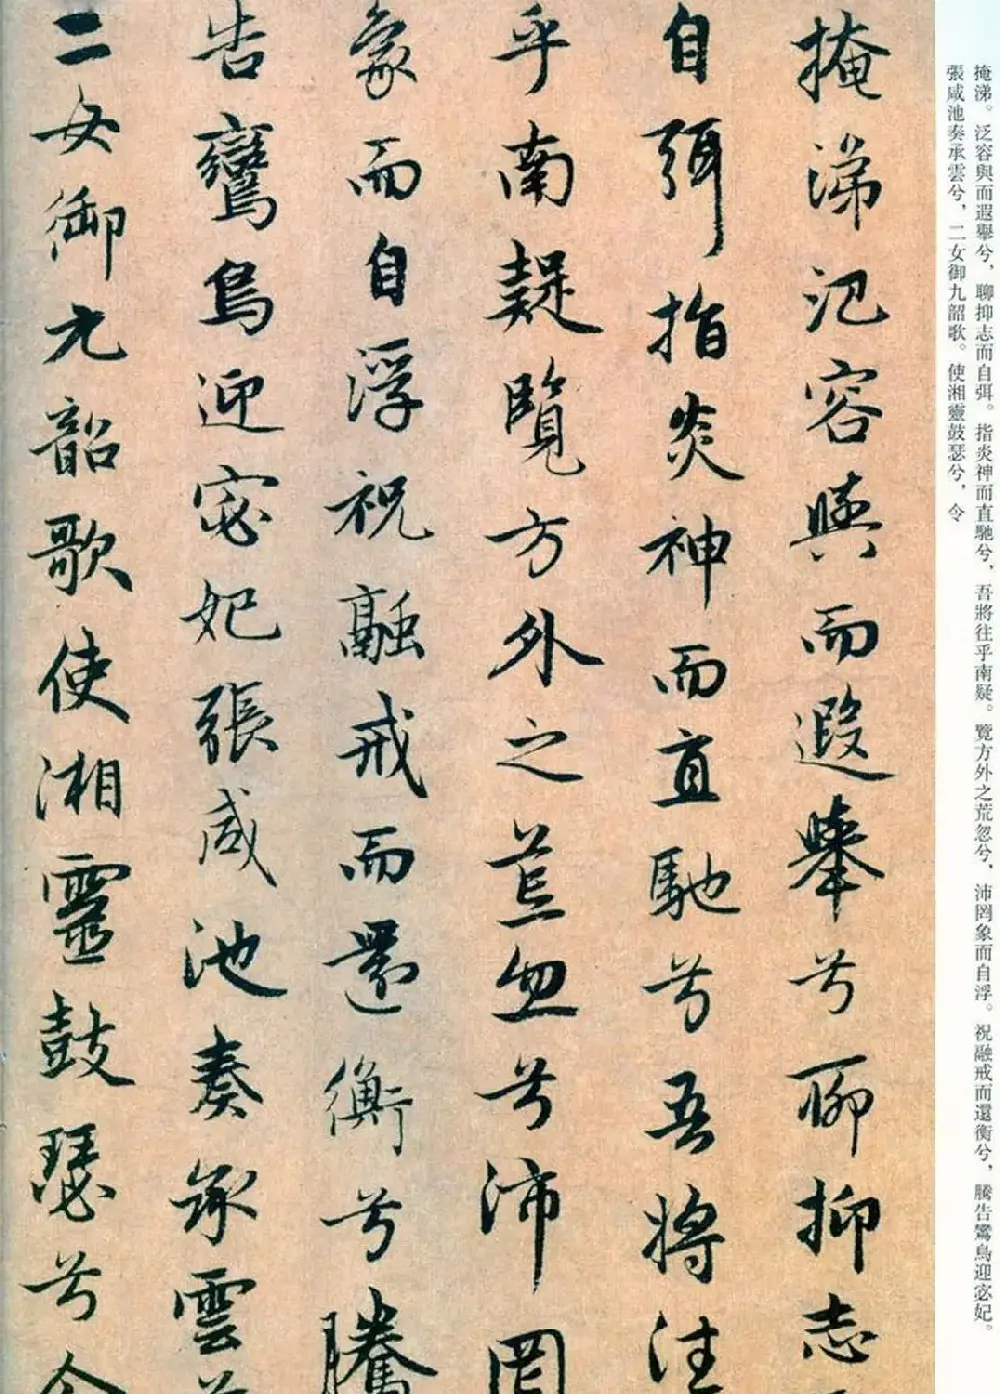 掩涕氾容與而遐舉兮聊抑志
自弭指炎神而直馳兮吾將往
乎南疑覽方外之荒忽兮沛罔
象而自浮祝融戒而還衡兮騰
告鸞鳥迎宓妃張咸池奏承雲
二女御九韶歌使湘靈鼓瑟兮令
掩涕。泛容與而遐舉兮，聊抑志而自弭。指炎神而直馳兮，吾將往乎南疑。覽方外之荒忽兮，沛罔象而自浮。祝融戒而還衡兮，騰告鸞鳥迎宓妃。
張咸池奏承雲兮，二女御九韶歌。使湘靈鼓瑟兮，令